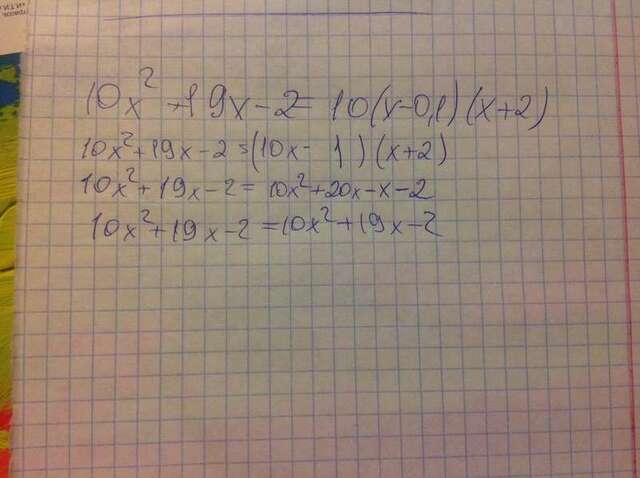 10x² + 19x - 2 = 10(x-0,1)(x+2)
10x² + 19x - 2 = (10x - 1)(x+2)
10x² + 19x - 2 = 10x² + 20x - x - 2
10x² + 19x - 2 = 10x² + 19x - 2